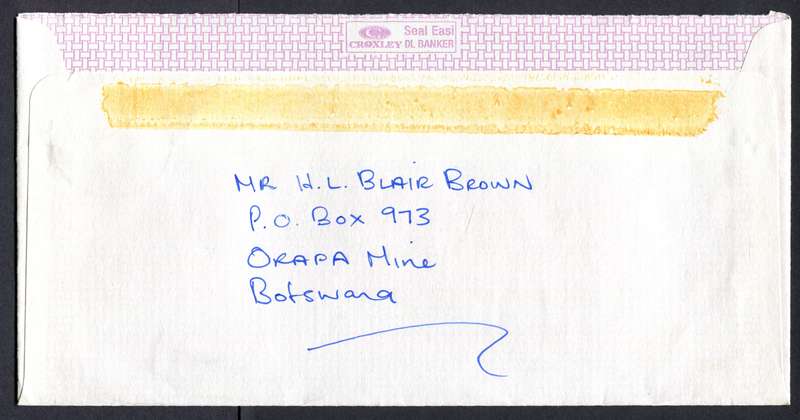 Seal Easi
CROXLEY DL BANKER
MR H.L. BLAIR BROWN
P.O. Box 973
ORAPA Mine
Botswana